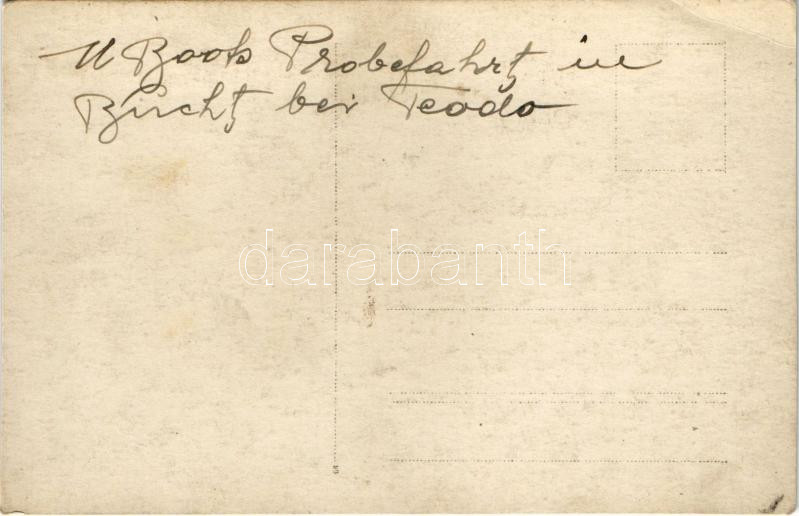 U Boots Probefahrt in
Bucht bei Teodo
darabanth